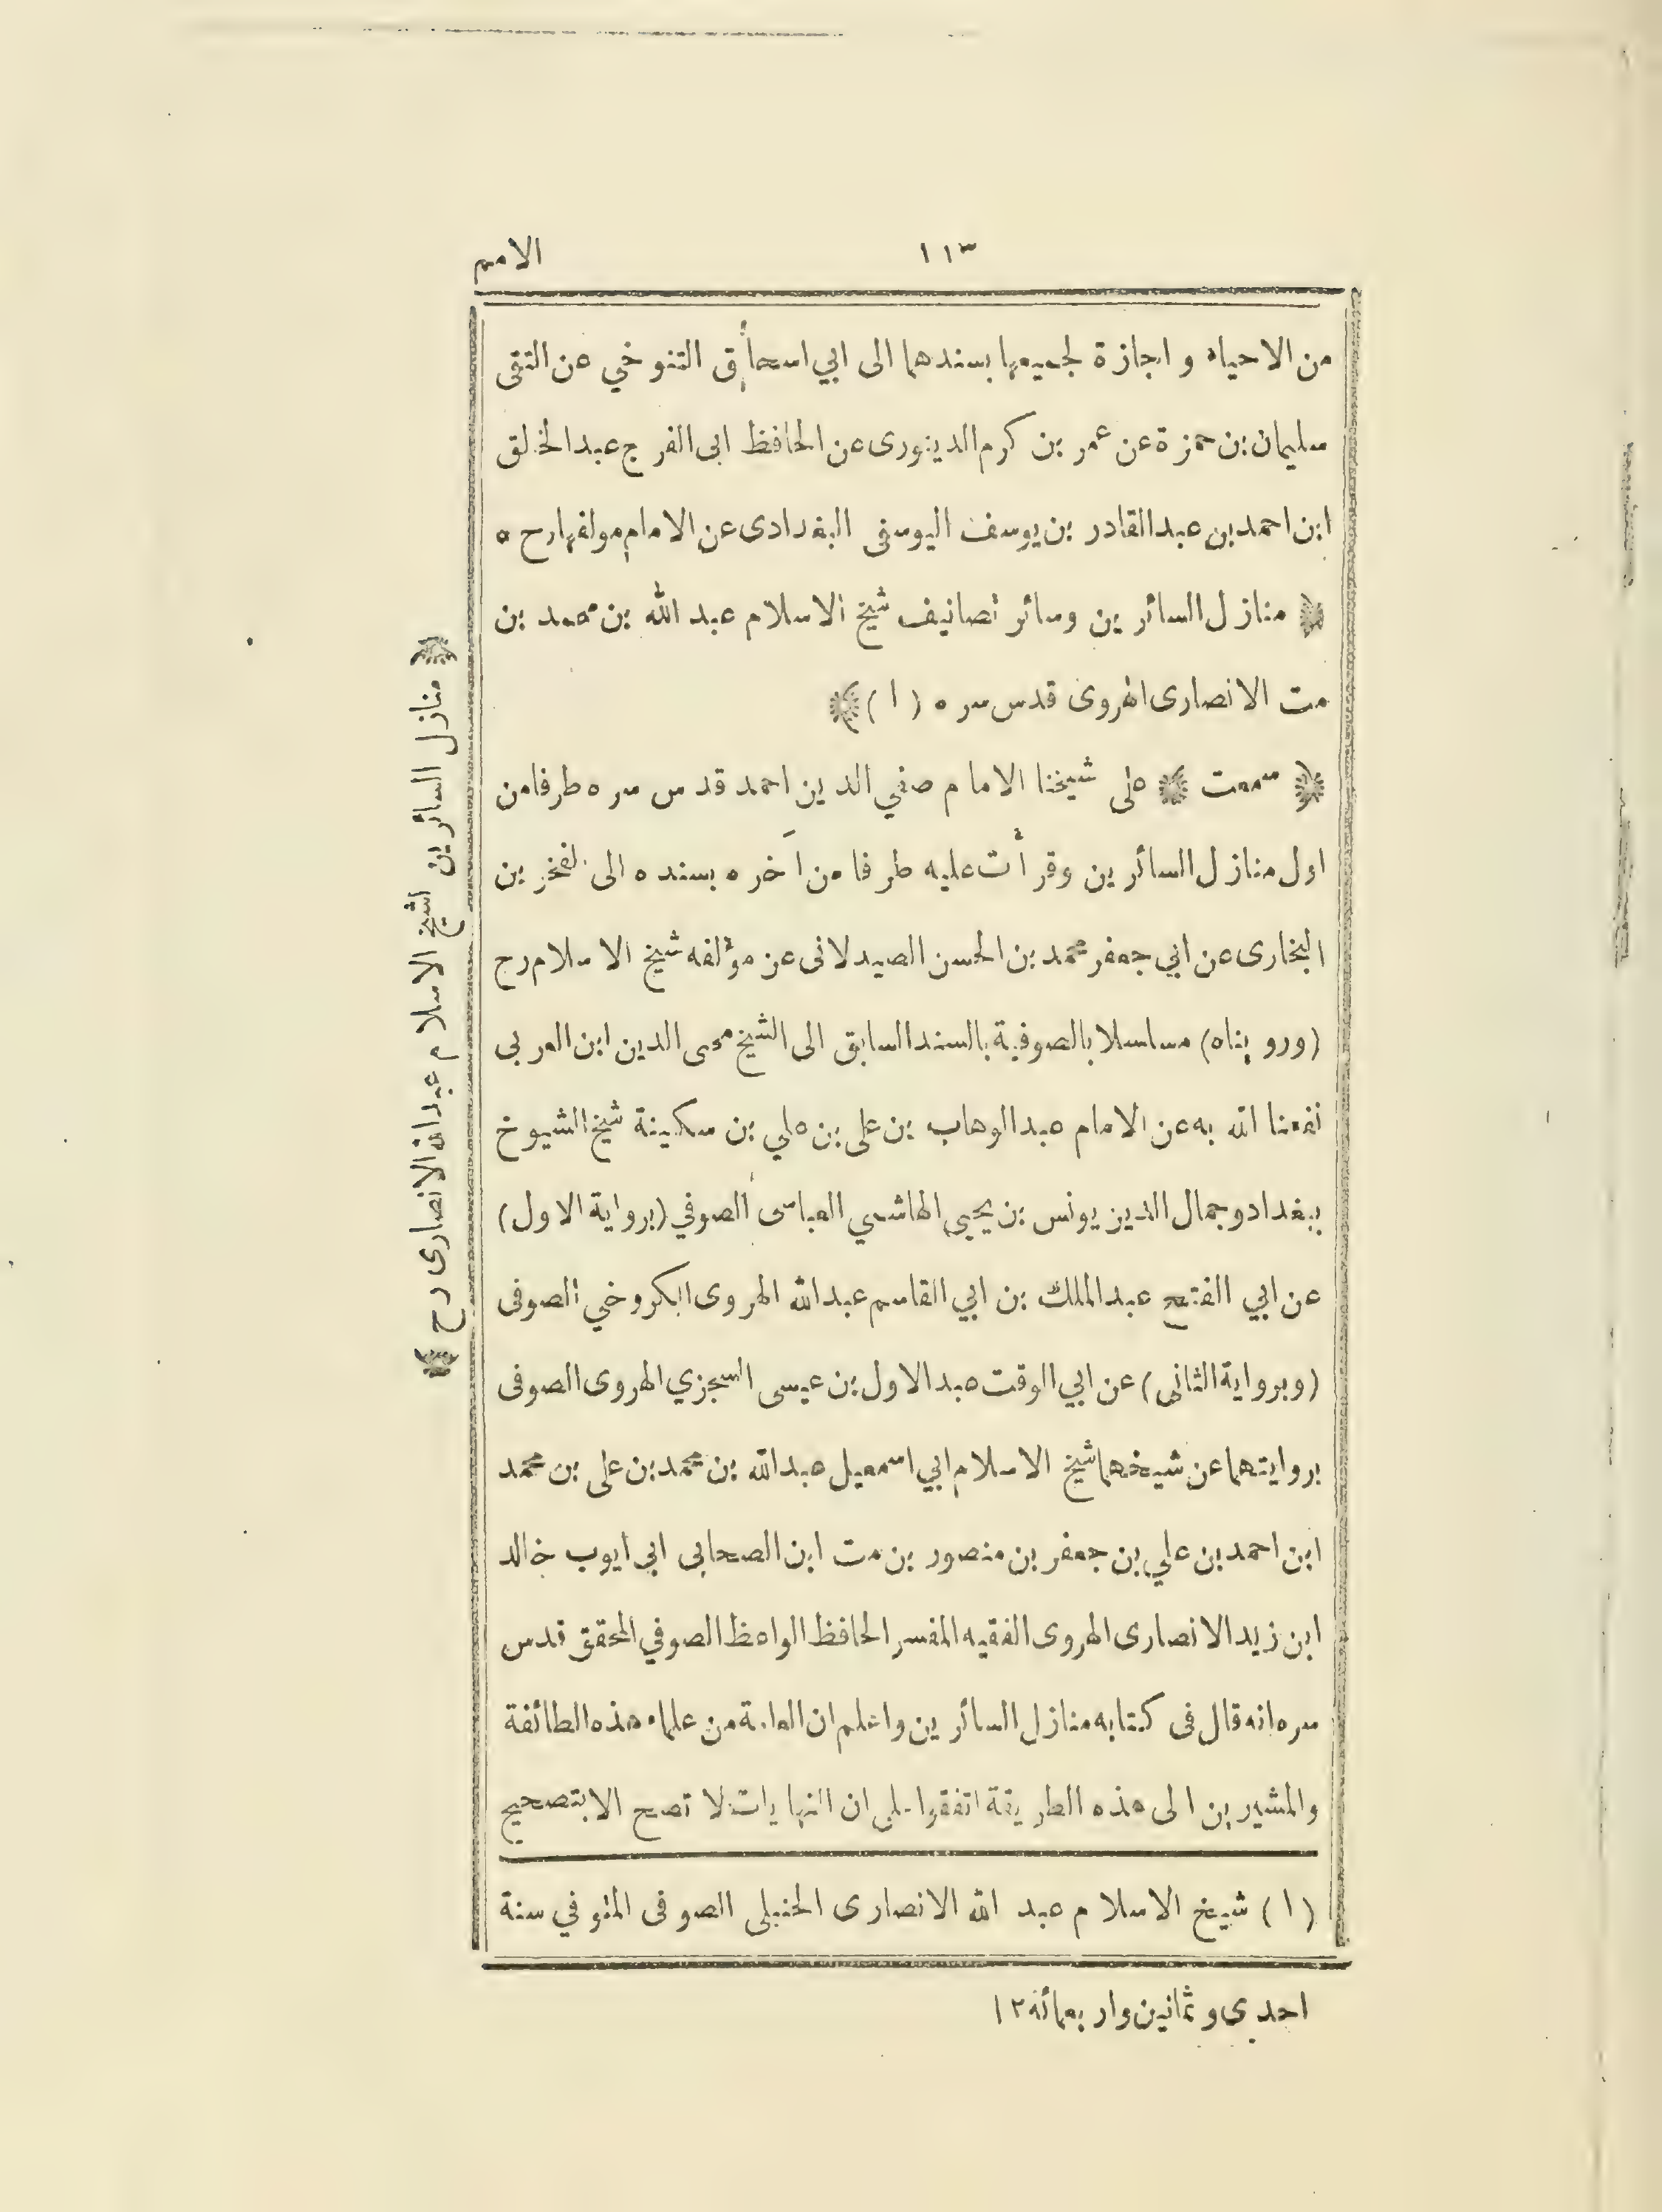 ١١٣
الامم
من الاحياء و اجازة لجميعها بسندهما الى ابي اسحاق التنوخي عن التقى
سليمان بن حمزة عن عمر بن كرم الدينورى عن الحافظ ابى الفرج عبد الخالق
ابن احمد بن عبد القادر بن يوسف اليوسفى البغدادى عن الامام مولفها رح ه
﴿ منازل السائرين وسائر تصانيف شيخ الاسلام عبد الله بن محمد بن
مت الانصارى الهروى قدس سره (١) ﴾
﴿ سمعت ﴾ على شيخنا الامام صفي الدين احمد قدس سره طرفا من
اول منازل السائرين وقرأت عليه طرفا من آخره بسنده الى الفخر بن
البخارى عن ابي جعفر محمد بن الحسن الصيدلانى عن مؤلفه شيخ الاسلام رح
(ورويناه) مسلسلا بالصوفية بالسند السابق الى الشيخ محى الدين ابن العربي
نفعنا الله به عن الامام عبد الوهاب بن على بن علي بن سكينة شيخ الشيوخ
ببغداد وجمال الدين يونس بن يحيى الهاشمي العباسى الصوفي (برواية الاول)
عن ابي الفتح عبد الملك بن ابي القاسم عبد الله الهروى الكروخي الصوفى
(وبرواية الثانى) عن ابي الوقت عبد الاول بن عيسى السجزي الهروى الصوفى
بروايتهما عن شيخهما شيخ الاسلام ابي اسمعيل عبد الله بن محمد بن على بن محمد
ابن احمد بن علي بن جعفر بن منصور بن مت ابن الصحابى ابى ايوب خالد
ابن زيد الانصارى الهروى الفقيه المفسر الحافظ الواعظ الصوفي المحقق قدس
سره انه قال فى كتابه منازل السائرين واعلم ان العامة من علماء هذه الطائفة
والمشيرين الى هذه الطريقة اتفقوا على ان النهايات لا تصح الا بتصحيح
(١) شيخ الاسلام عبد الله الانصارى الحنبلى الصوفى المتوفي سنة
احدى وثمانين واربعمائة ١٢
﴿ منازل السائرين لشيخ الاسلام عبد الله الانصارى رح ﴾